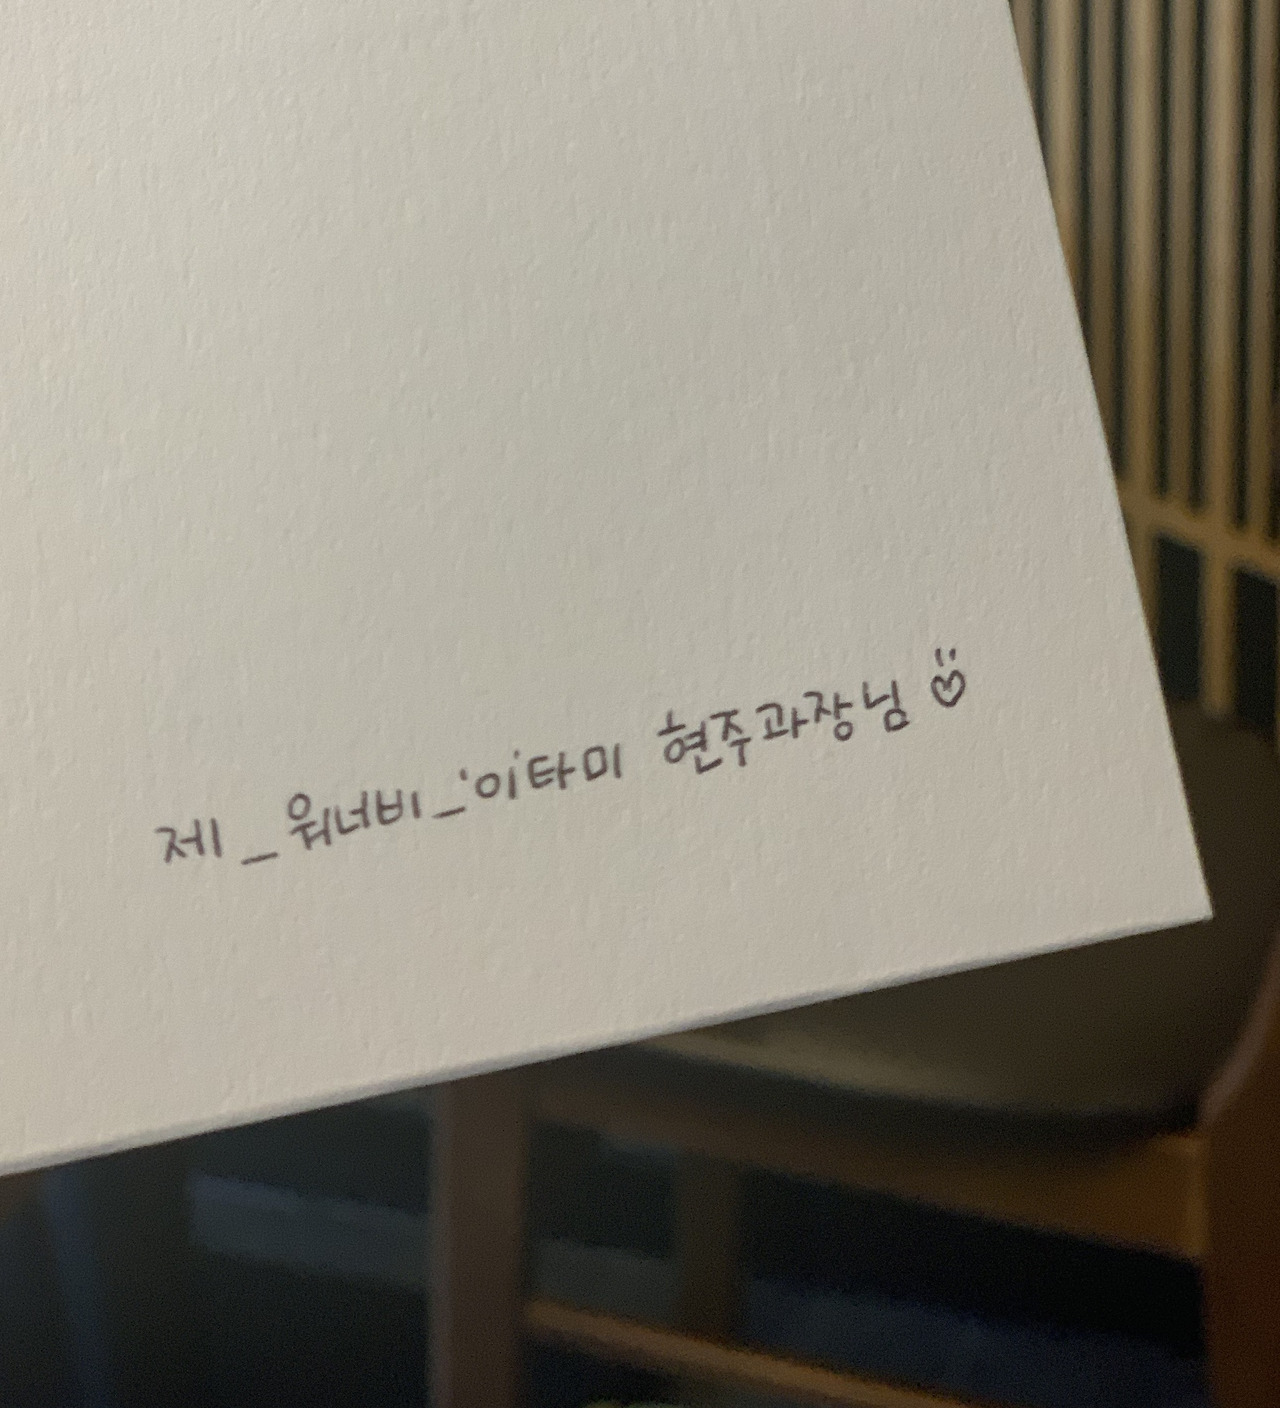 제_워너비_'이타미 현주과장님 ♡